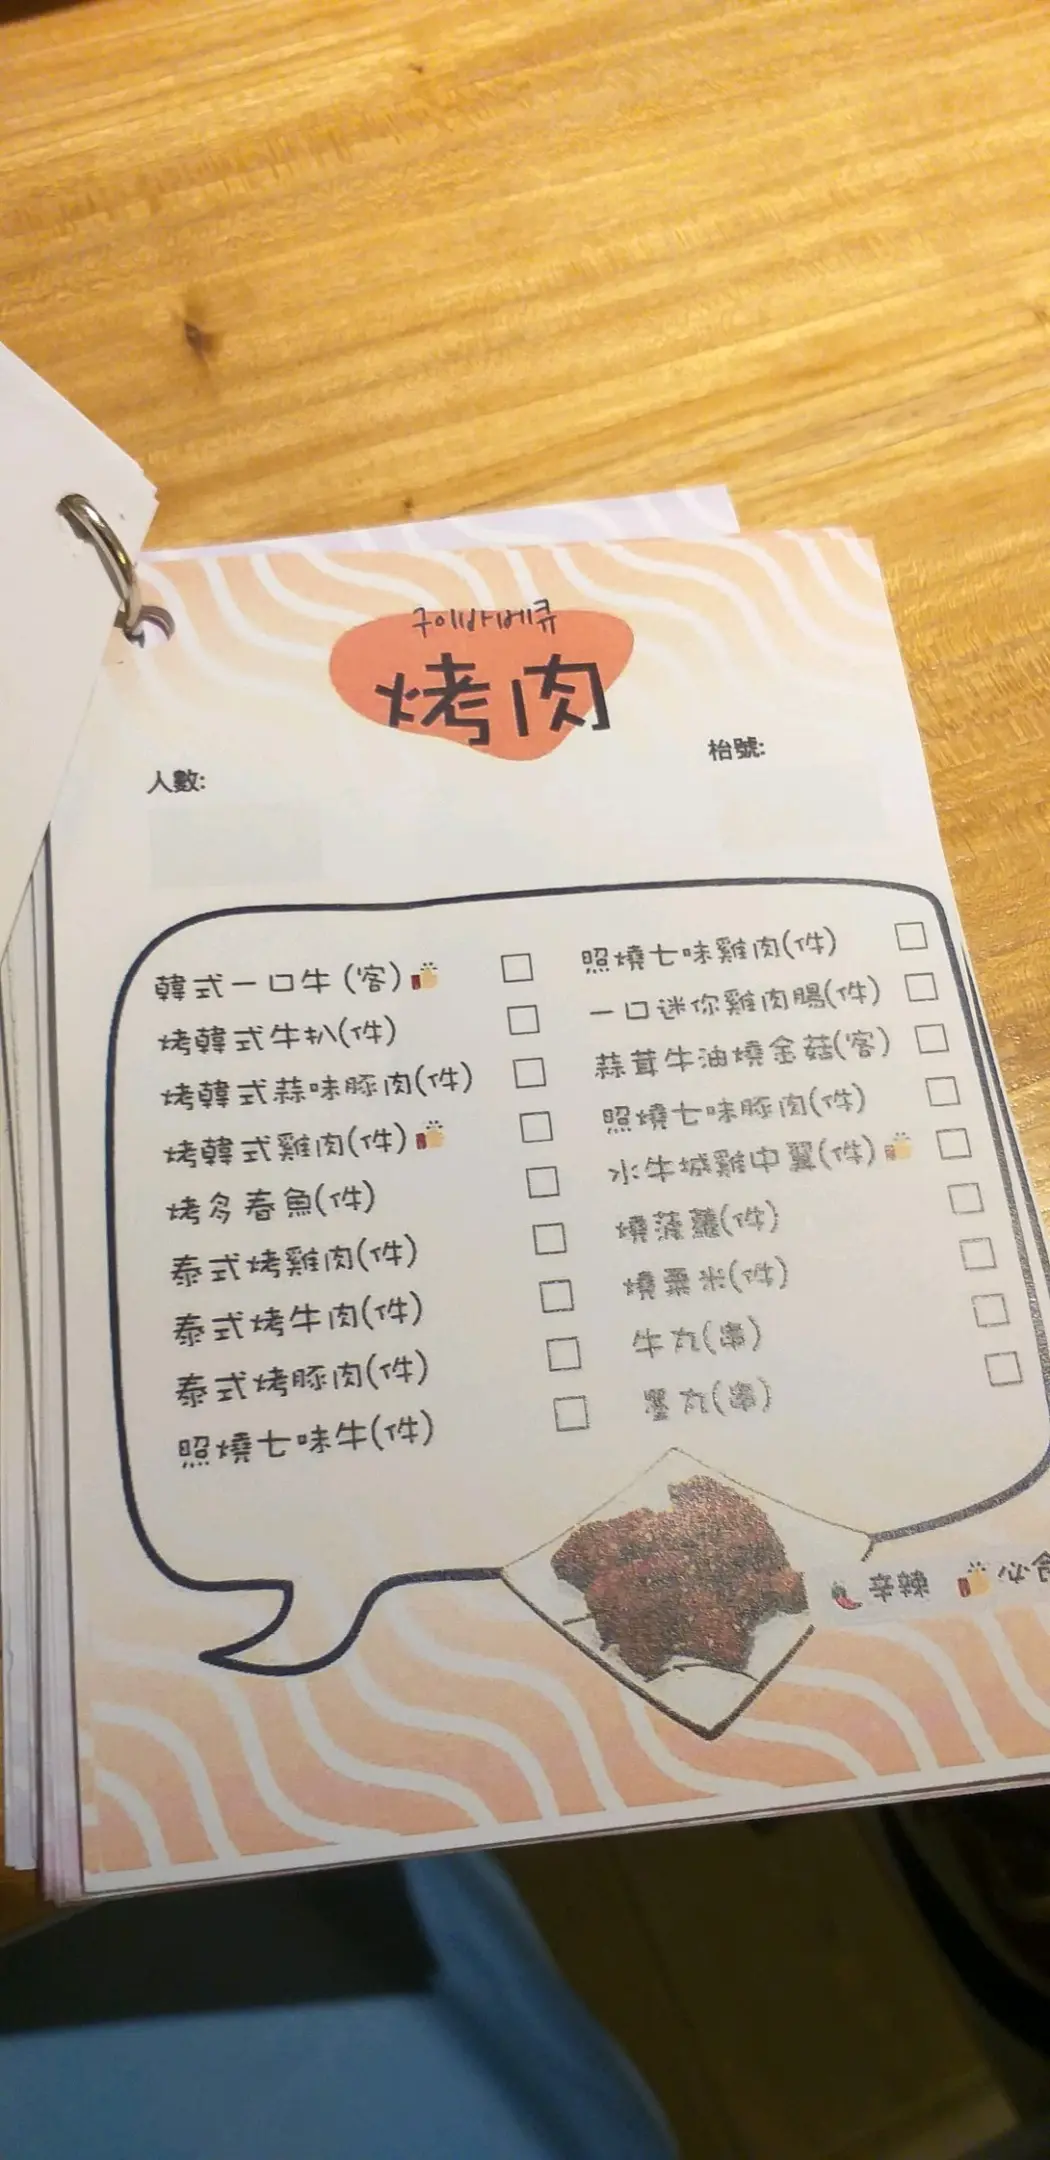 구이바베큐
烤肉
人數:
枱號:
韓式一口牛(客)
烤韓式牛扒(件)
烤韓式蒜味豚肉(件)
烤韓式雞肉(件)
烤多春魚(件)
泰式烤雞肉(件)
泰式烤牛肉(件)
泰式烤豚肉(件)
照燒七味牛(件)
照燒七味雞肉(件)
一口迷你雞肉腸(件)
蒜茸牛油燒金菇(客)
照燒七味豚肉(件)
水牛城雞中翼(件)
燒菠蘿(件)
燒粟米(件)
牛丸(串)
墨丸(串)
辛辣
必